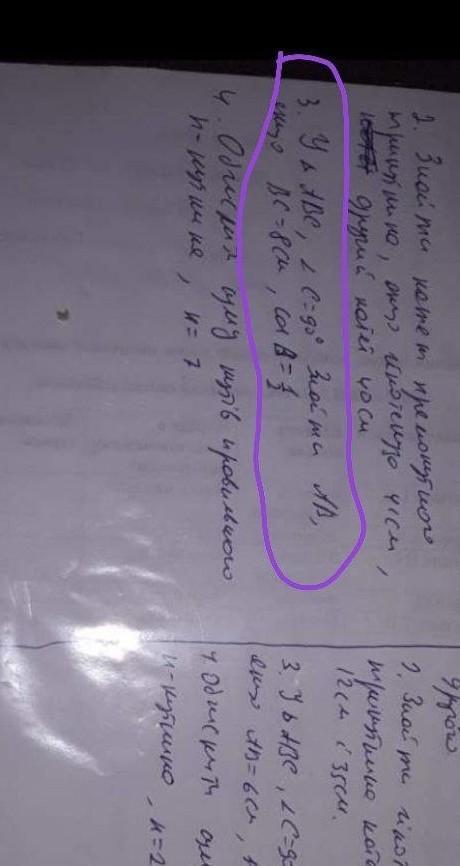 2. Знайти катет прямокутного
трикутника, якщо гіпотенуза 41см,
другий катет 40см
3. У Δ ABC, ∠C=90° Знайти AB,
якщо BC=8см, cos B=
4. Обчисліть суму кутів правильного
n-кутника, n=7
другого
2. Знайти гіпо
трикутника кат
12см і 35см.
3. У Δ ABC, ∠C=90
якщо AB=6см,
4. Обчислити сум
n-кутника, n=2